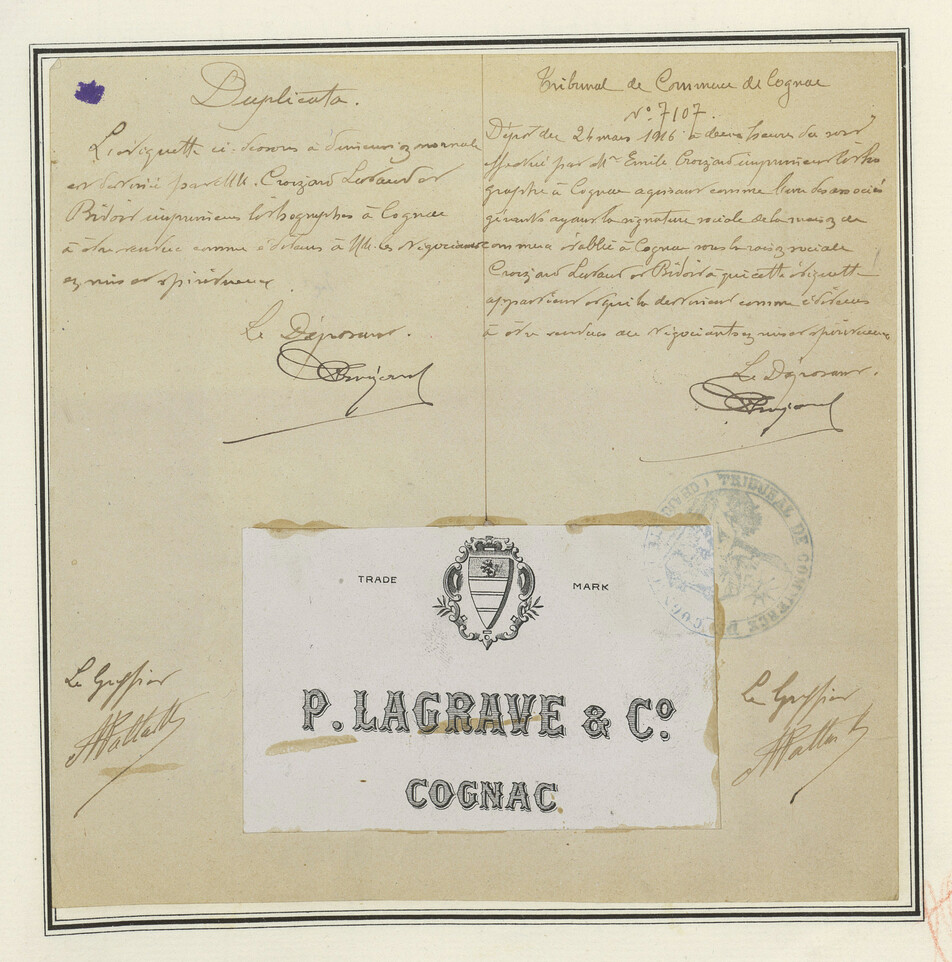 Duplicata.
L'étiquette ci-dessous à dimension normale
est destinée par MM. Croizard Lutaud et
Bidoit imprimeurs lithographes à Cognac
à être vendue comme éditeurs à MM. les Négociants
en vins et spiritueux
Le Déposant.
Tribunal de Commerce de Cognac
N° 7107.
Dépôt du 24 mars 1916 à deux heures du soir
effectué par Mr Emile Croizard imprimeur litho
graphe à Cognac agissant comme l'un des associés
gérants ayant la signature sociale de la maison de
commerce établie à Cognac sous la raison sociale
Croizard Lutaud et Bidoit à qui cette étiquette
appartient et qui la destinent comme éditeurs
à être vendue aux Négociants en vins et spiritueux
Le Déposant.
TRIBUNAL DE COMMERCE DE COGNAC
TRADE MARK
P. LAGRAVE & Cº.
COGNAC
Le Greffier
Le Greffier